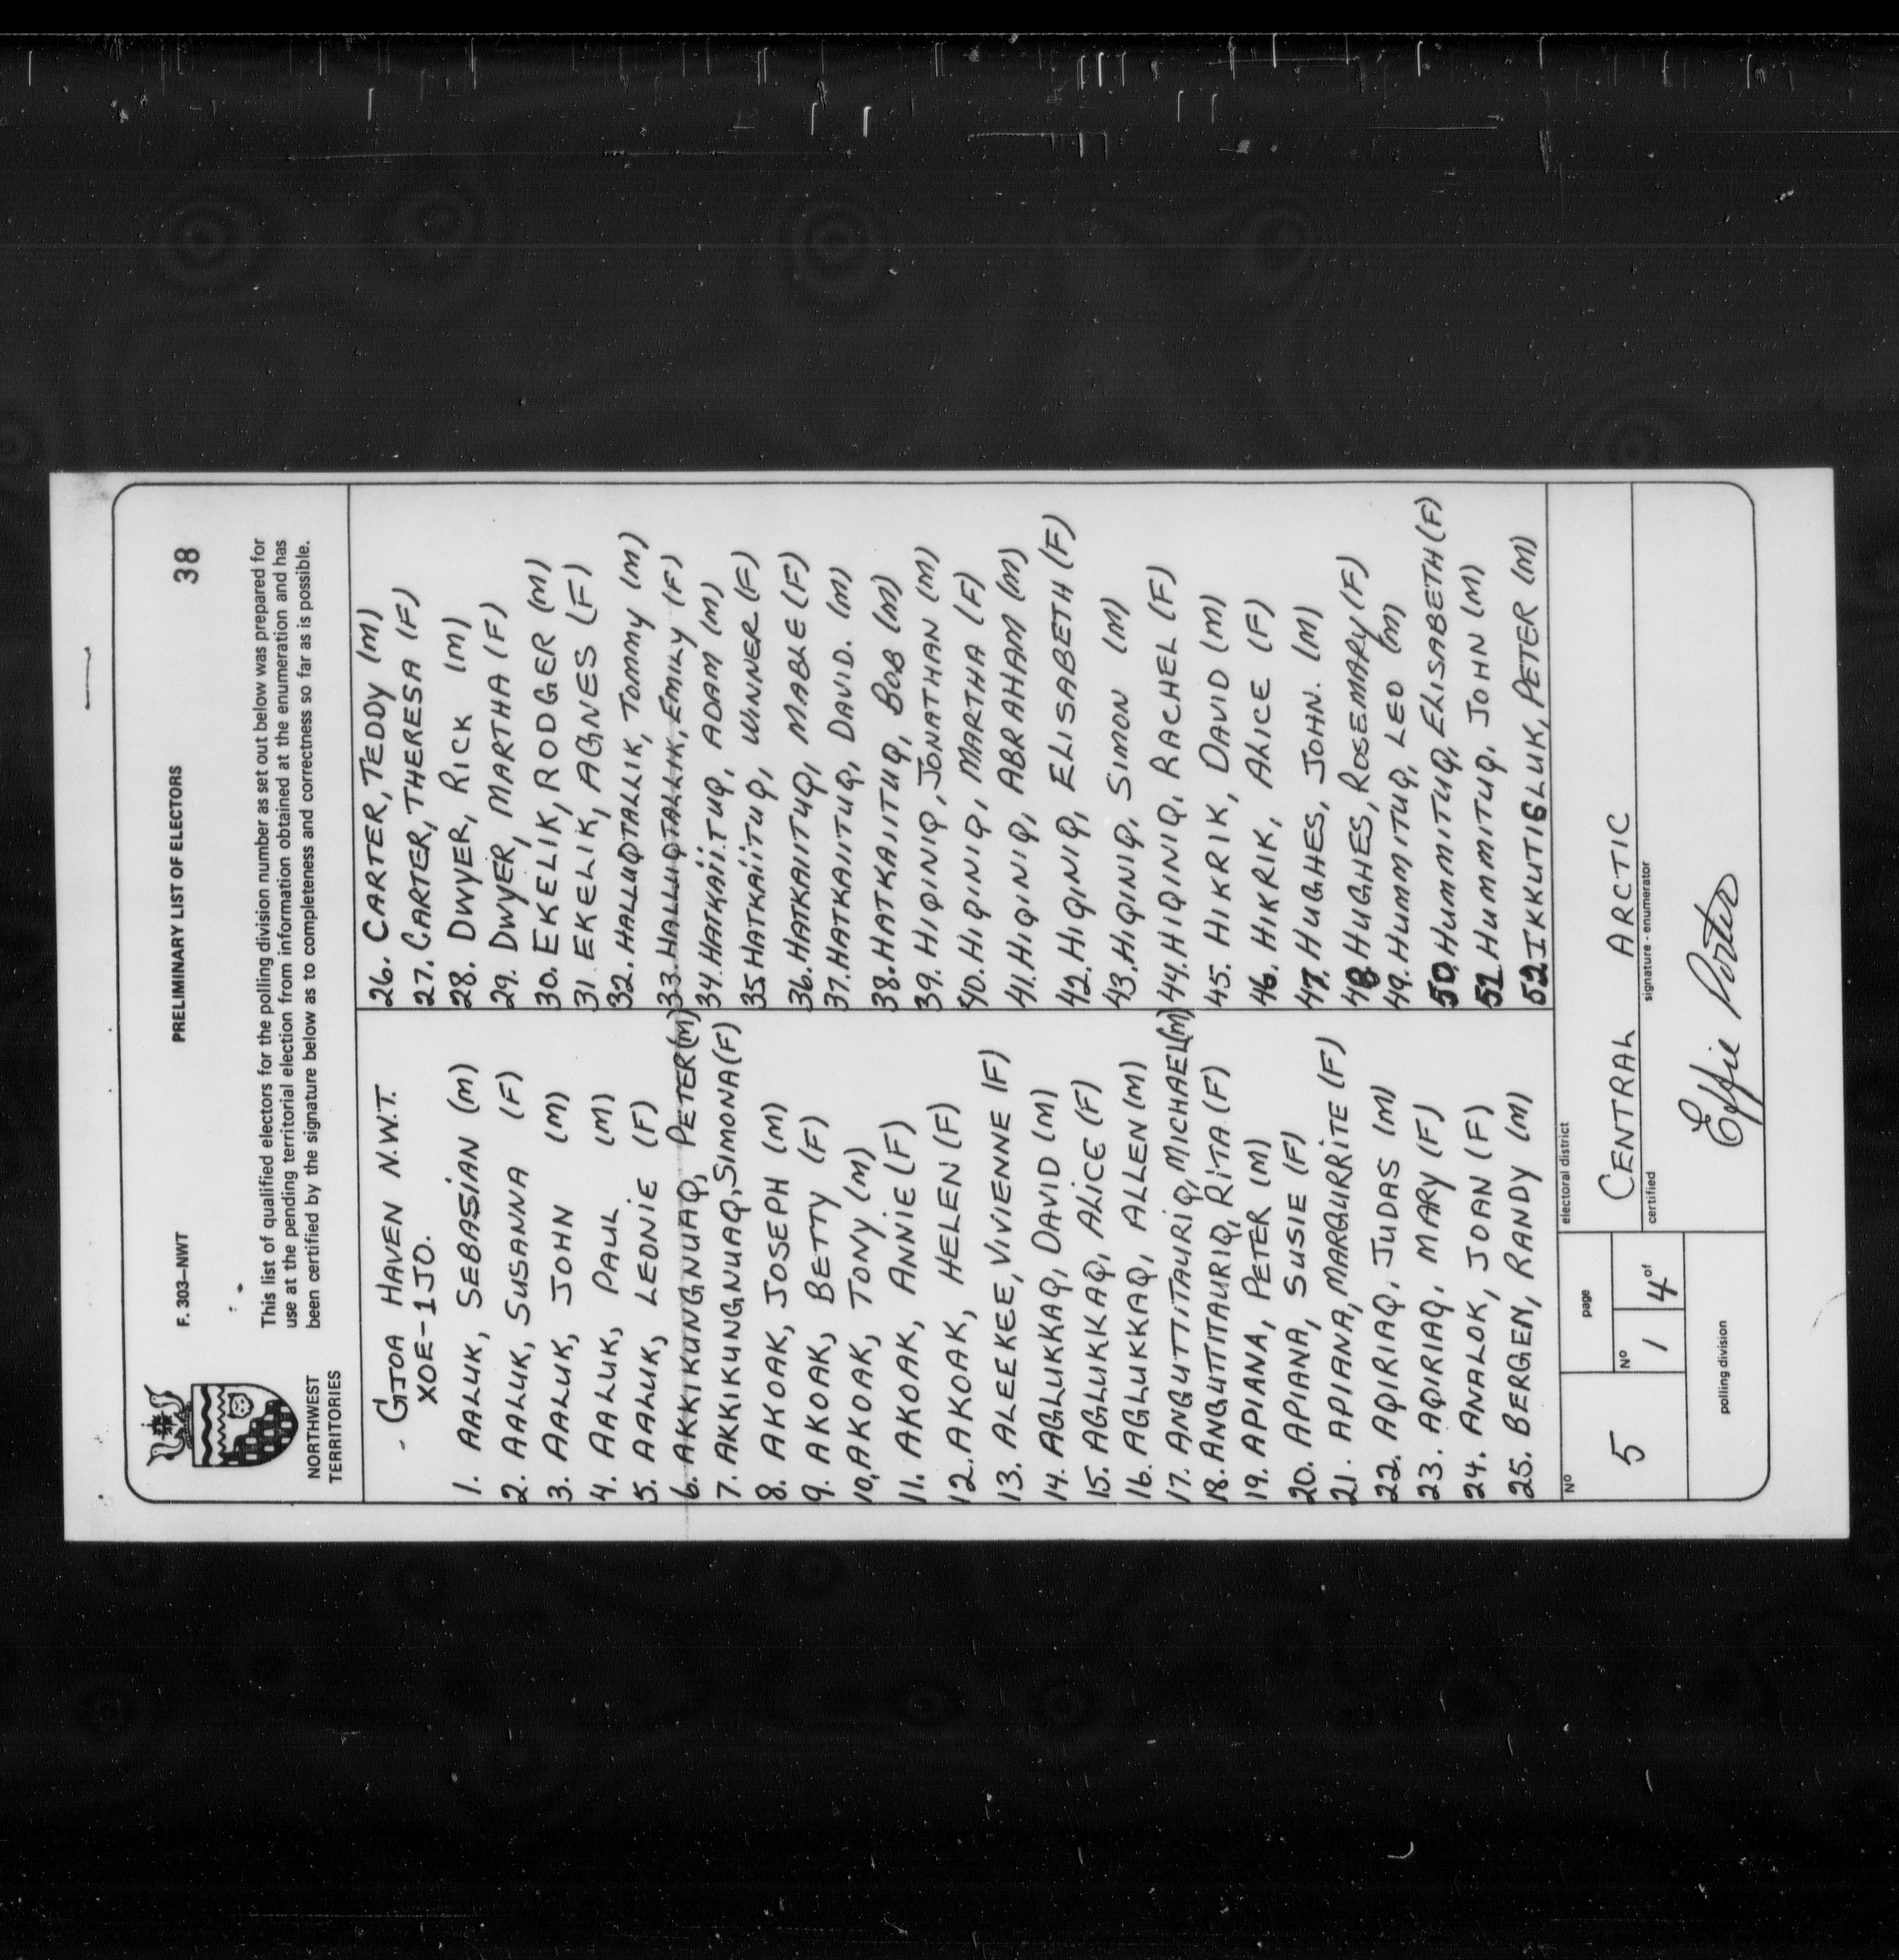 NORTHWEST
TERRITORIES
F. 303–NWT
PRELIMINARY LIST OF ELECTORS
38
This list of qualified electors for the polling division number as set out below was prepared for
use at the pending territorial election from information obtained at the enumeration and has
been certified by the signature below as to completeness and correctness so far as is possible.
GJOA HAVEN N.W.T.
XOE-1JO.
1. AALUK, SEBASIAN (M)
2. AALUK, SUSANNA (F)
3. AALUK, JOHN (M)
4. AALUK, PAUL (M)
5. AALUK, LEONIE (F)
6. AKKIKUNGNUAQ, PETER (M)
7. AKKIKUNGNUAQ, SIMONA (F)
8. AKOAK, JOSEPH (M)
9. AKOAK, BETTY (F)
10. AKOAK, TONY (M)
11. AKOAK, ANNIE (F)
12. AKOAK, HELEN (F)
13. ALEEKEE, VIVIENNE (F)
14. AGLUKKAQ, DAVID (M)
15. AGLUKKAQ, ALICE (F)
16. AGLUKKAQ, ALLEN (M)
17. ANGUTTITAURIQ, MICHAEL (M)
18. ANGUTITAURIQ, RITA (F)
19. APIANA, PETER (M)
20. APIANA, SUSIE (F)
21. APIANA, MARGURRITE (F)
22. AQIRIAQ, JUDAS (M)
23. AQIRIAQ, MARY (F)
24. ANALOK, JOAN (F)
25. BERGEN, RANDY (M)
26. CARTER, TEDDY (M)
27. CARTER, THERESA (F)
28. DWYER, RICK (M)
29. DWYER, MARTHA (F)
30. EKELIK, RODGER (M)
31. EKELIK, AGNES (F)
32. HALLUQTALLIK, TOMMY (M)
33. HALLUQTALLIK, EMILY (F)
34. HATKAIITUQ, ADAM (M)
35 HATKAIITUQ, WINNER (F)
36. HATKAIITUQ, MABLE (F)
37. HATKAIITUQ, DAVID. (M)
38. HATKAIITUQ, BOB (M)
39. HIQINIQ, JONATHAN (M)
40. HIQINIQ, MARTHA (F)
41. HIQINIQ, ABRAHAM (M)
42. HIQINIQ, ELISABETH (F)
43. HIQINIQ, SIMON (M)
44. HIQINIQ, RACHEL (F)
45. HIKRIK, DAVID (M)
46. HIKRIK, ALICE (F)
47. HUGHES, JOHN. (M)
48. HUGHES, ROSEMARY (F)
49. HUMMITUQ, LEO (M)
50. HUMMITUQ, ELISABETH (F)
51. HUMMITUQ, JOHN (M)
52 IKKUTISLUK, PETER (M)
Nº
5
page
Nº
1
of
4
polling division
electoral district
CENTRAL ARCTIC
certified
signature - enumerator
Effie Porter